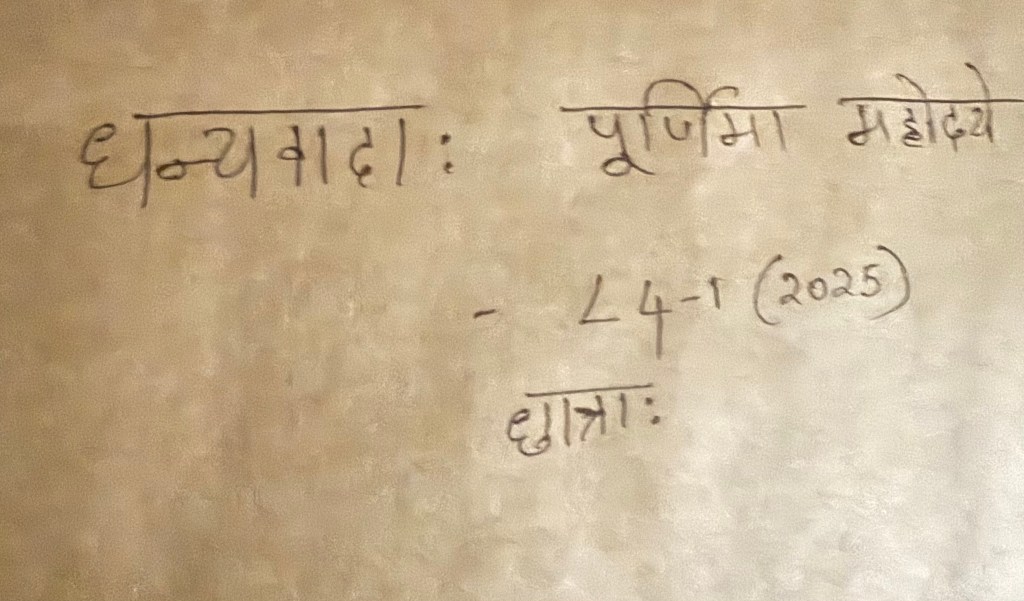 धन्यवादाः पूर्णिमा महोदये
- L4-1 (2025)
छात्राः